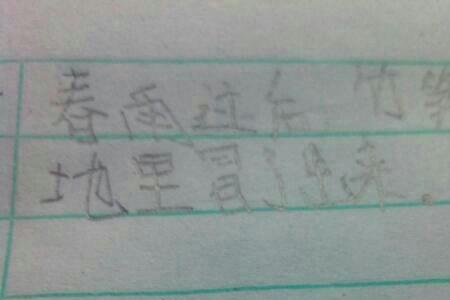 春雨过后,竹笋
地里冒了出来.